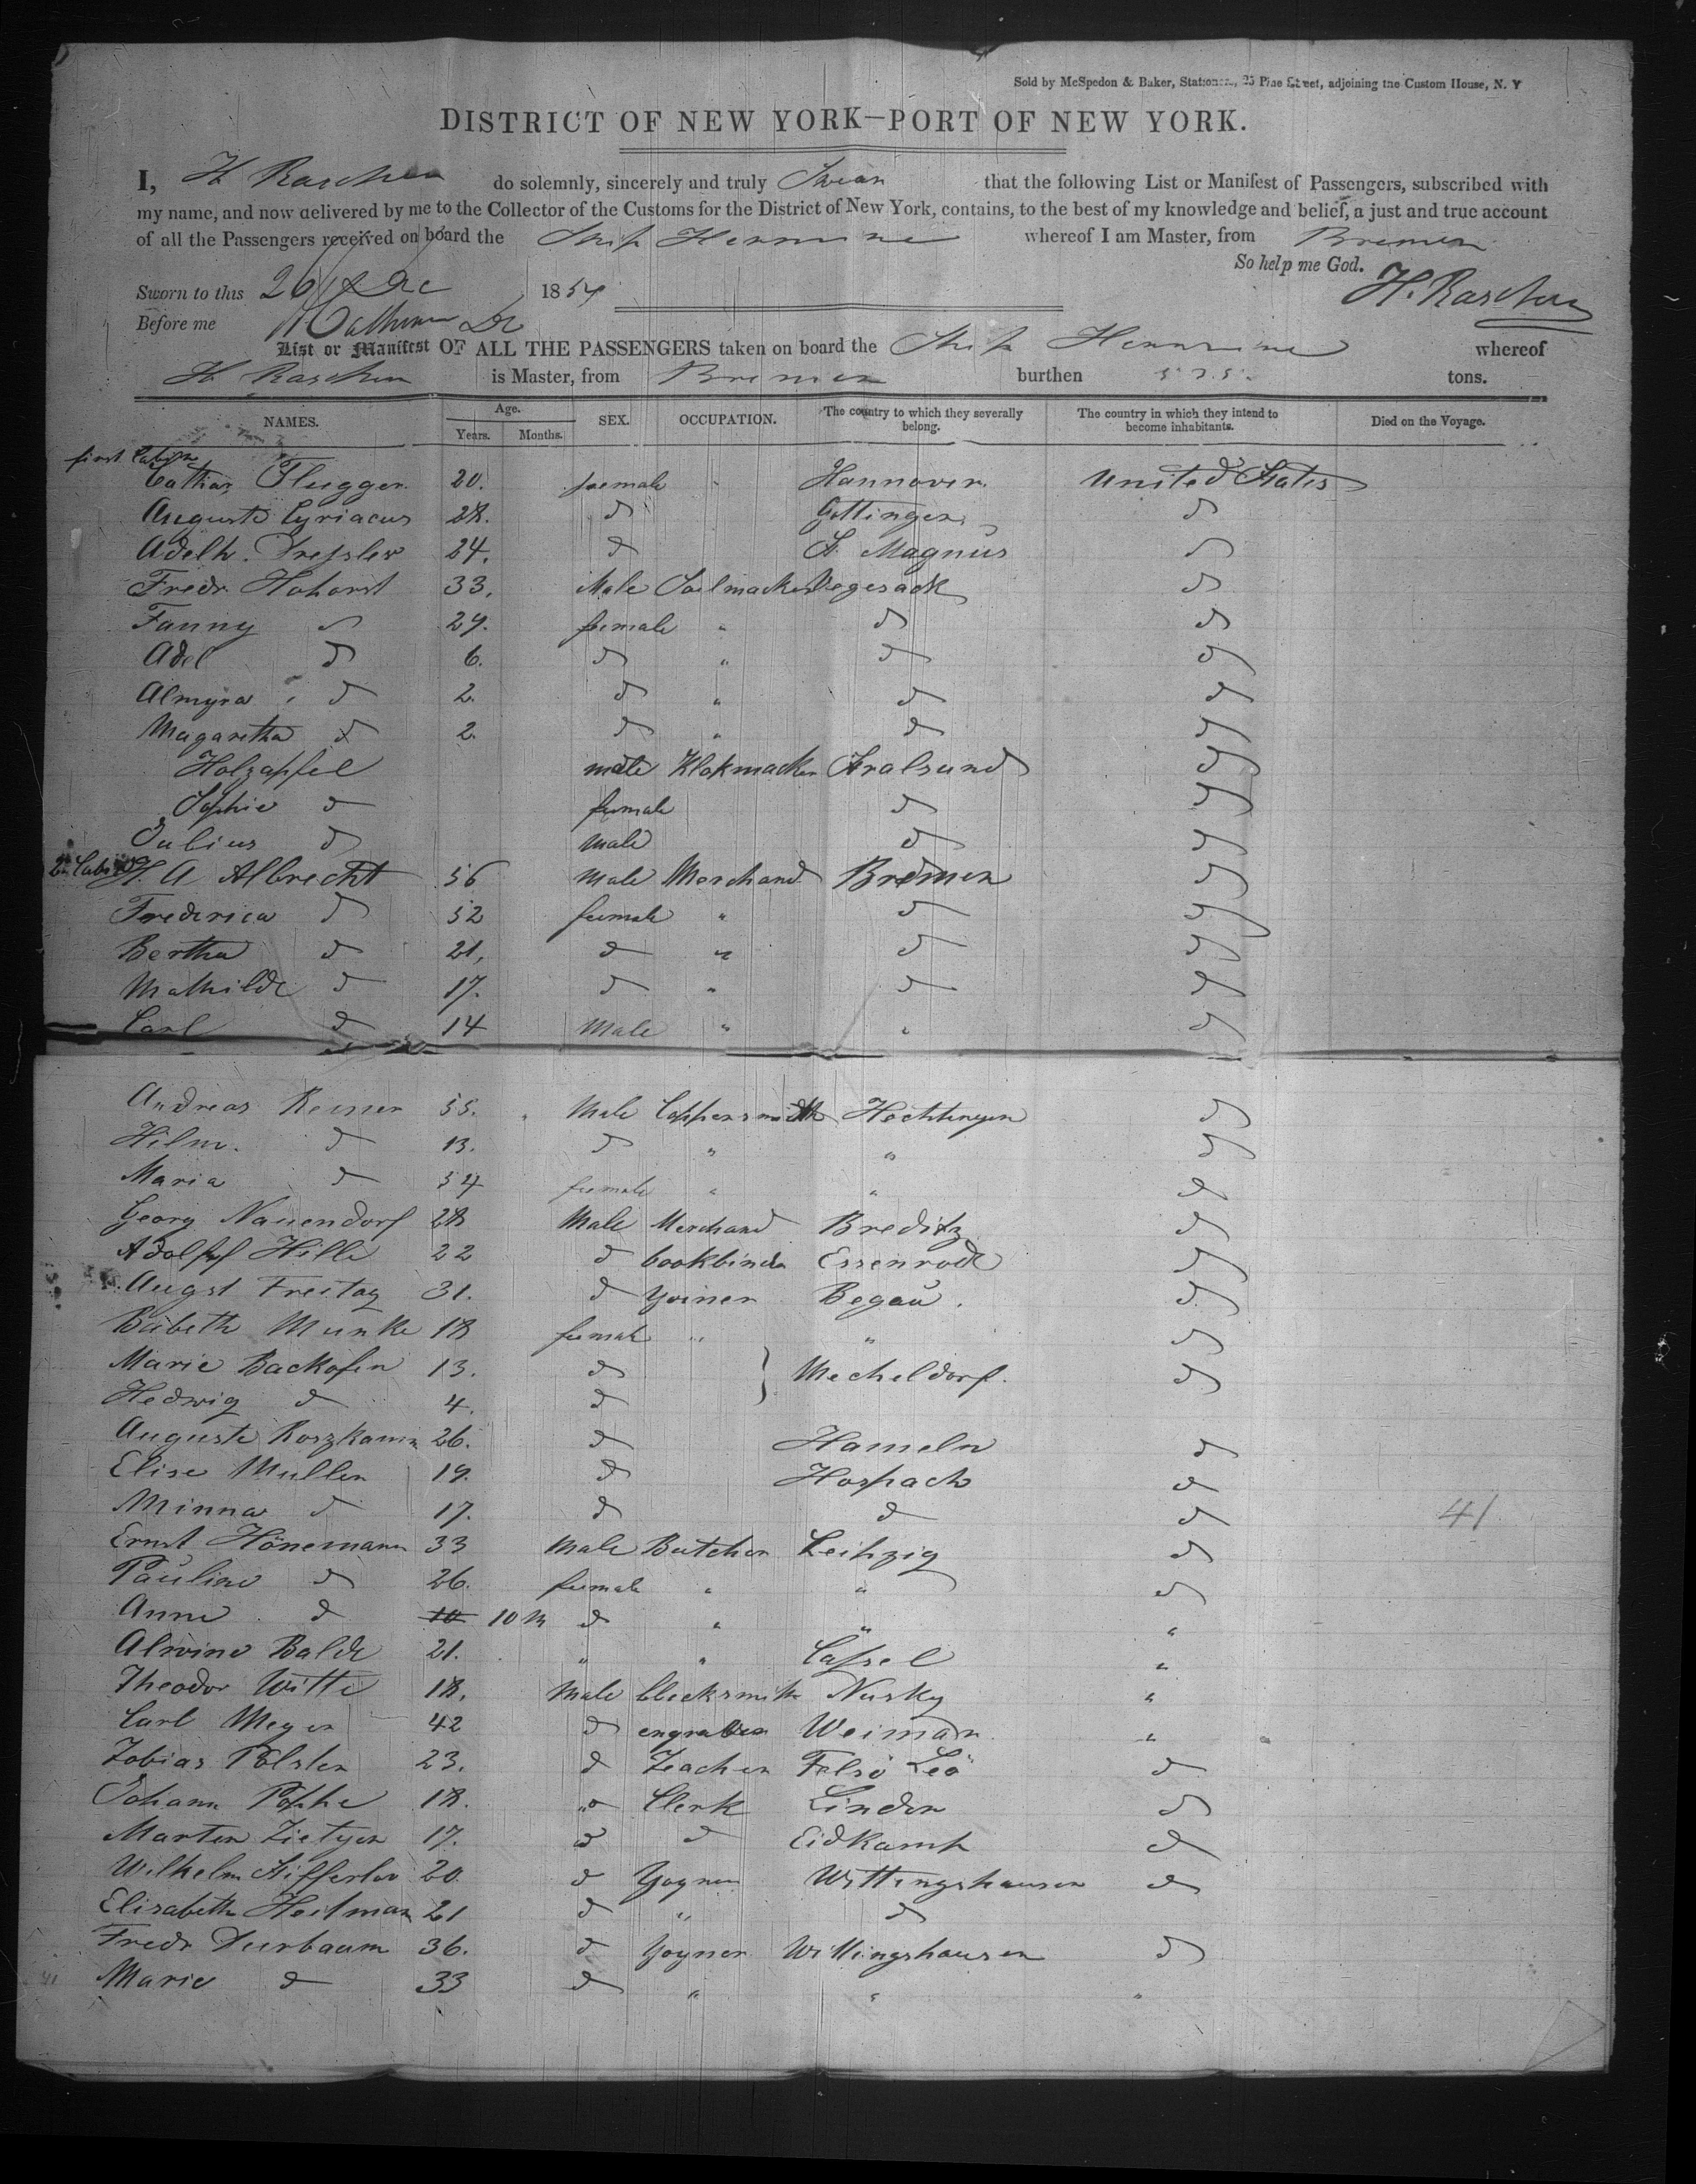 Sold by McSpedon & Baker, Stationers, 25 Pine Street, adjoining the Custom House, N. Y
DISTRICT OF NEW YORK—PORT OF NEW YORK.
I, H Raschen do solemnly, sincerely and truly Swear that the following List or Manifest of Passengers, subscribed with
my name, and now delivered by me to the Collector of the Customs for the District of New York, contains, to the best of my knowledge and belief, a just and true account
of all the Passengers received on board the Ship Hermine whereof I am Master, from Bremen
So help me God.
Sworn to this 26 Dec 1854 H. Raschen
Before me
List or Manifest OF ALL THE PASSENGERS taken on board the Ship Hermine whereof
H Raschen is Master, from Bremen burthen 575 tons.
NAMES. Age. Years. Months. SEX. OCCUPATION. The country to which they severally belong. The country in which they intend to become inhabitants. Died on the Voyage.
first Cabin
Cathar Flugger 20. female " Hannover. United States
Auguste Cyriacus 28. d Gottingen d
Adelh. Dressler 24. d St. Magnus d
Fredr. Hohorst 33. Male Sailmacker Vegesack d
Fanny d 29. female " d d
Adel d 6. d " d d
Almyra d 2. d " d d
Magaretha d 2. d " d d
Holzapfel male Klokmacker Stralsund d
Sophie d female d d
Julius d male d d
2n Cabin H. A Albrecht 56 male Merchand Bremen d
Frederica d 52 female " d d
Bertha d 21, d " d d
Mathilde d 17. d " d d
Carl d 14 Male " " d
Andreas Reiner 55. " Male Coppersmith Hechtingen d
Hilm. d 13. d " " d
Maria d 54 female " " d
Georg Nauendorf 28 Male Merchand Breditz d
Adolph Hille 22 d bookbinder Essenrode d
Augst Freitag 31. d Yoiner Begau. d
Babeth Munke 18 female " " d
Marie Backofen 13. d } Mecheldorf. d
Hedwig d 4. d
Auguste Roszkamm 26. d Hameln d
Elise Muller 19. d Hospach d
Minna d 17. d d d 41
Ernst Hönemann 33 Male Butcher Leipzig d
Pauline d 26. female " " d
Anne d 10 10 M d " " "
Alwine Balde 21. " " Cassel "
Theodor Witte 18. Male blecksmith Nusky "
Carl Meyer 42 d engraver Weimar "
Tobias Polster 23. d Teacher Felsö Leö d
Johann Poppe 18. d Clerk Linden d
Marten Tietyen 17. d d Eidkamp d
Wilhelm Stifferlar 20. d Yoyner Wittingshausen d
Elisabeth Heitman 21 d " d
Fredr Duerbaum 36. d Yoyner Wittingshausen d
41 Marie d 33 d " " "